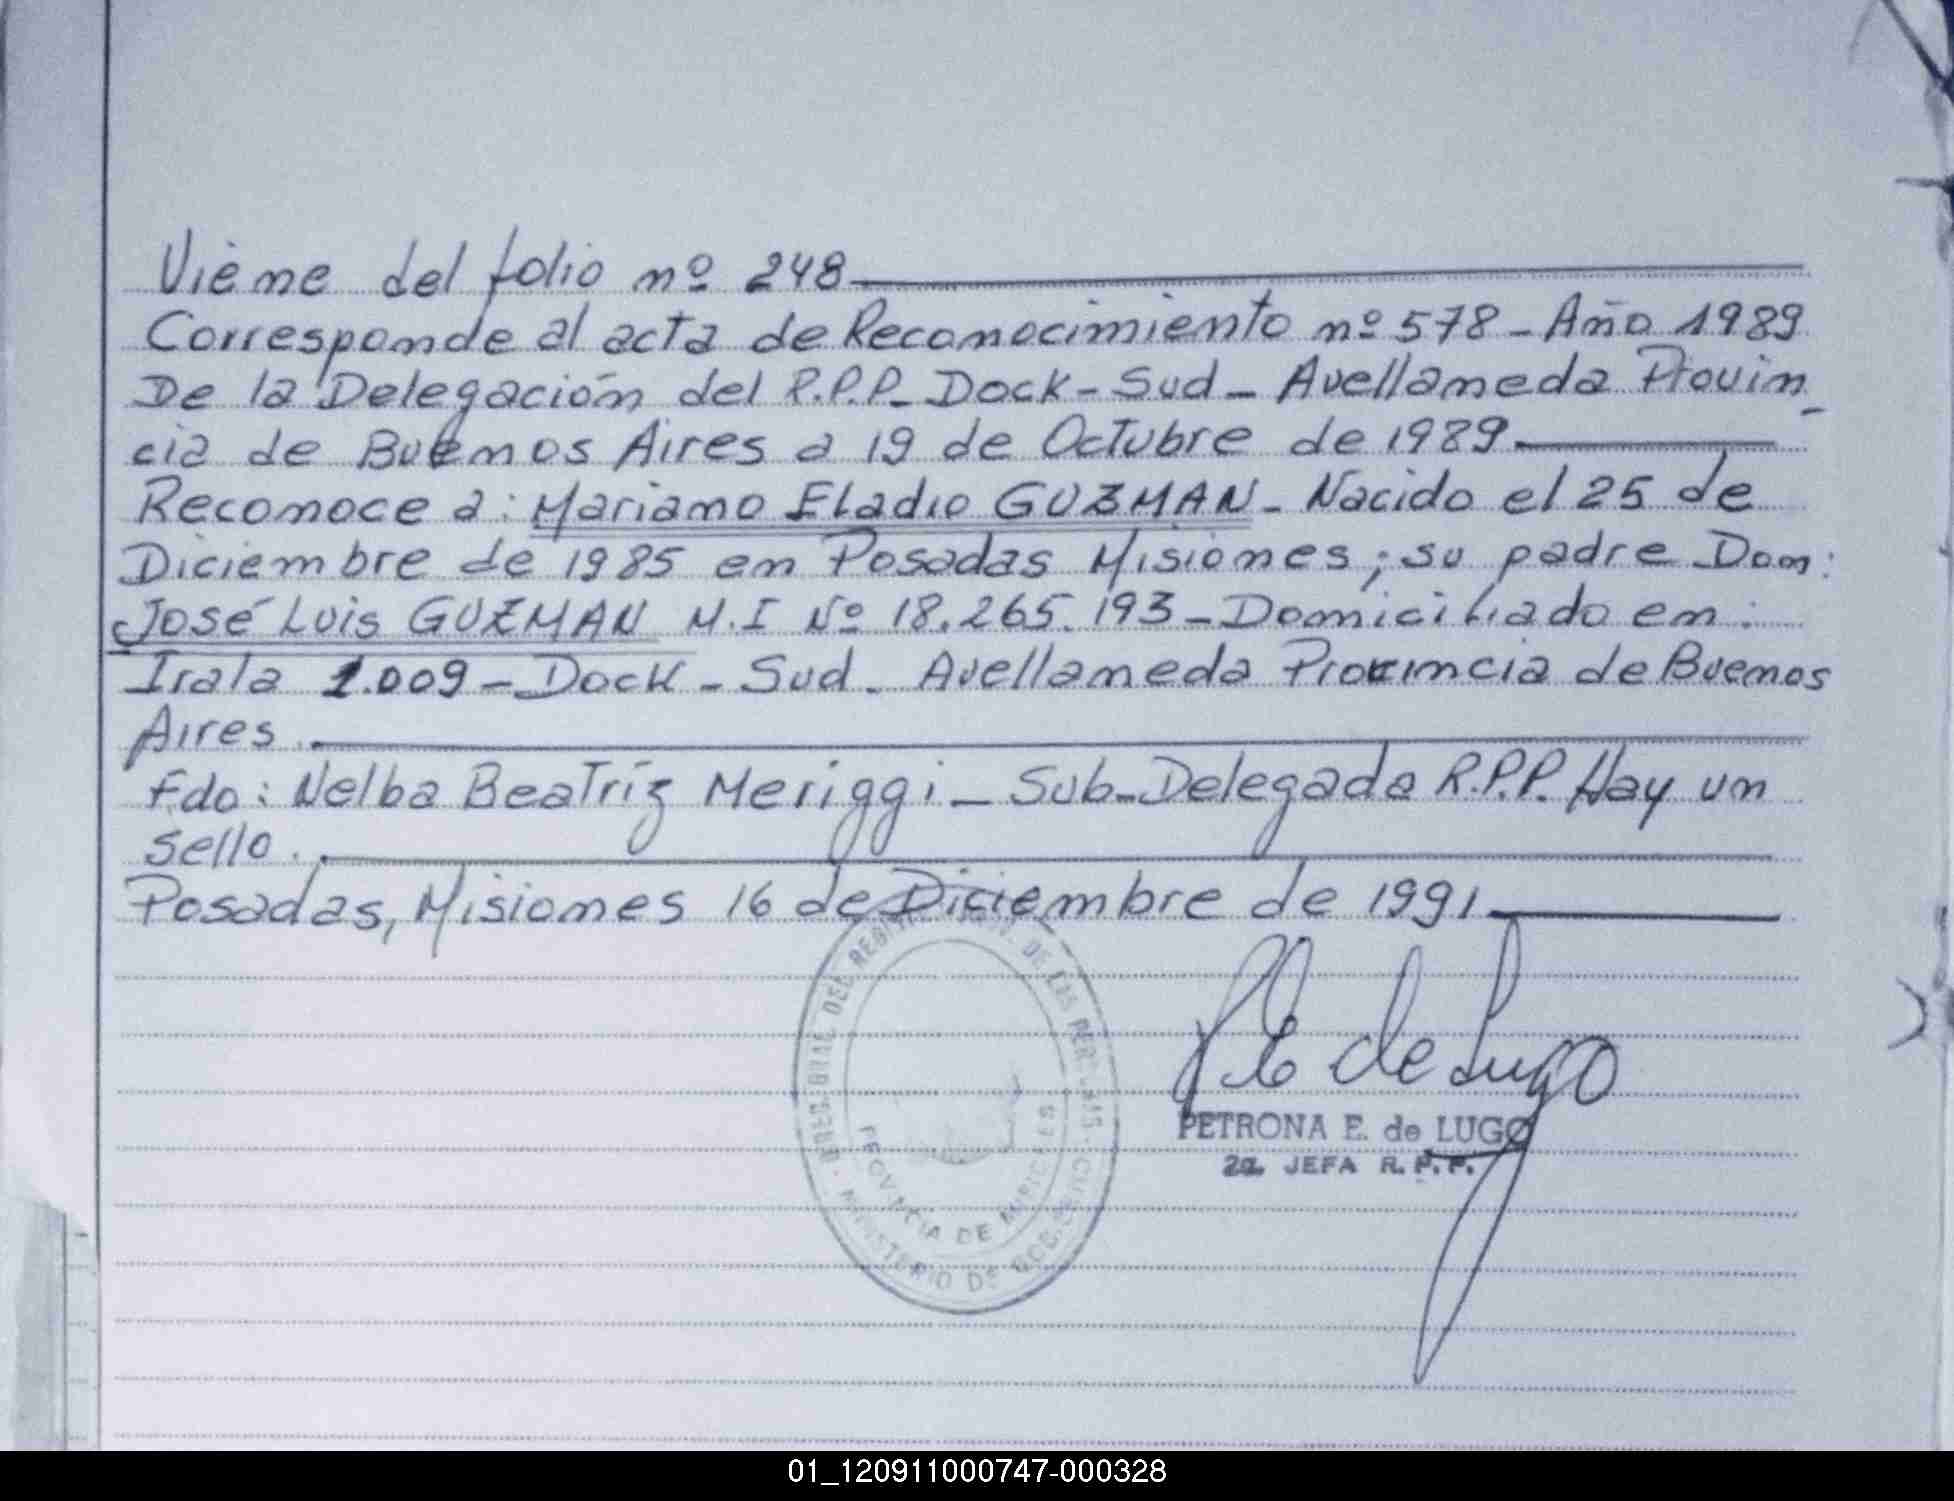 Viene del folio nº 248
Corresponde al acta de Reconocimiento nº 578 - Año 1989
De la Delegación del R.P.P. Dock-Sud - Avellaneda Provin-
cia de Buenos Aires a 19 de Octubre de 1989
Reconoce a: Mariano Eladio GUZMAN - Nacido el 25 de
Diciembre de 1985 en Posadas Misiones; su padre Don:
José Luis GUZMAN M.I Nº 18.265.193 - Domiciliado en:
Irala 1.009 - Dock - Sud. Avellaneda Provincia de Buenos
Aires.
Fdo: Nelba Beatríz Meriggi - Sub-Delegada R.P.P. Hay un
sello.
Posadas, Misiones 16 de Diciembre de 1991
DE LAS PERSONAS
PROVINCIA DE MISIONES
MINISTERIO DE GOB.
de Lugo
PETRONA E. de LUGO
2a. JEFA R.P.P.
01_120911000747-000328